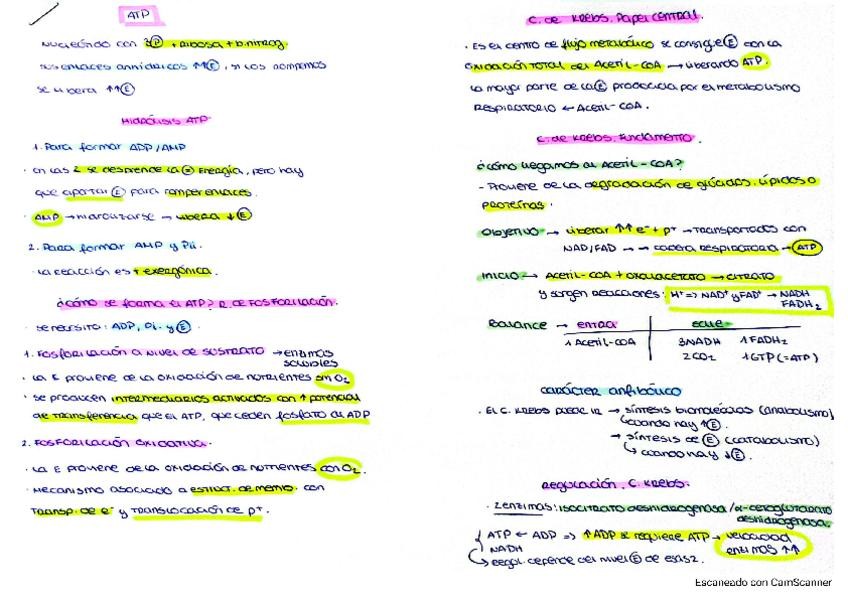 ATP
Nucleótido con 3Ⓟ + Ribosa + b.nitrog.
sus enlaces anhídricos ↑↑Ⓔ, si los rompemos
se libera ↑↑Ⓔ
Hidrólisis ATP
1. Para formar ADP/AMP
· En las 2 se desprende la = Energía, pero hay
que aportar Ⓔ para romper enlaces.
· AMP → → libera ↓Ⓔ
2. Para formar AMP y Pii.
· La reacción es + exergónica.
¿Cómo se forma el ATP? R. DE FOSFORILACIÓN.
· se necesita: ADP, Pi. y Ⓔ
1. FOSFORILACIÓN A NIVEL DE SUSTRATO → enzimas
solubles
· La E proviene de la oxidación de nutrientes sin O₂
· se producen intermediarios activados con ↑ potencial
de transferencia que el ATP, que ceden fosfato al ADP
2. FOSFORILACIÓN OXIDATIVA.
· La E proviene de la oxidación de nutrientes con O₂.
· Mecanismo asociado a estruct. de memb. con
transp. de e⁻ y translocación de p⁺.
C. de KREBS. Papel CENTRAL.
· Es el centro de flujo metabólico se consigue Ⓔ con la
oxidación total del Acetil-CoA → liberando ATP.
La mayor parte de la Ⓔ producida por el metabolismo
respiratorio ← Acetil-CoA.
C. de KREBS. Fundamento.
¿Cómo llegamos al Acetil-CoA?
- Proviene de la degradación de glúcidos, lípidos o
proteínas.
Objetivo → liberar ↑↑ e⁻ + p⁺ → transportados con
NAD/FAD → → cadena respiratoria → ATP
Inicio → Acetil-CoA + oxalacetato → citrato
y surgen reacciones: H⁺ => NAD⁺ y FAD⁺ → NADH
FADH₂
Balance → entra sale
1 Acetil-CoA 3NADH 1FADH₂
2CO₂ 1GTP(=ATP)
Carácter anfibólico
· El C. Krebs puede ir → síntesis biomoléculas (anabolismo)
↳ cuando hay ↑Ⓔ.
→ síntesis de Ⓔ (catabolismo)
↳ cuando hay ↓Ⓔ.
Regulación. C. KREBS.
· 2 enzimas: isocitrato deshidrogenasa / α-cetoglutarato
deshidrogenasa.
ATP ← ADP => ↑ADP se requiere ATP → velocidad
NADH enzimas ↑↑
↳ Regul. depende del nivel Ⓔ de esas 2.
Escaneado con CamScanner